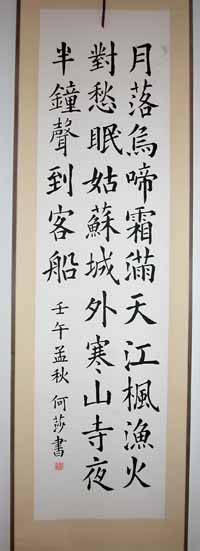 月落烏啼霜滿天江楓漁火
對愁眠姑蘇城外寒山寺夜
半鐘聲到客船
壬午孟秋何莎書